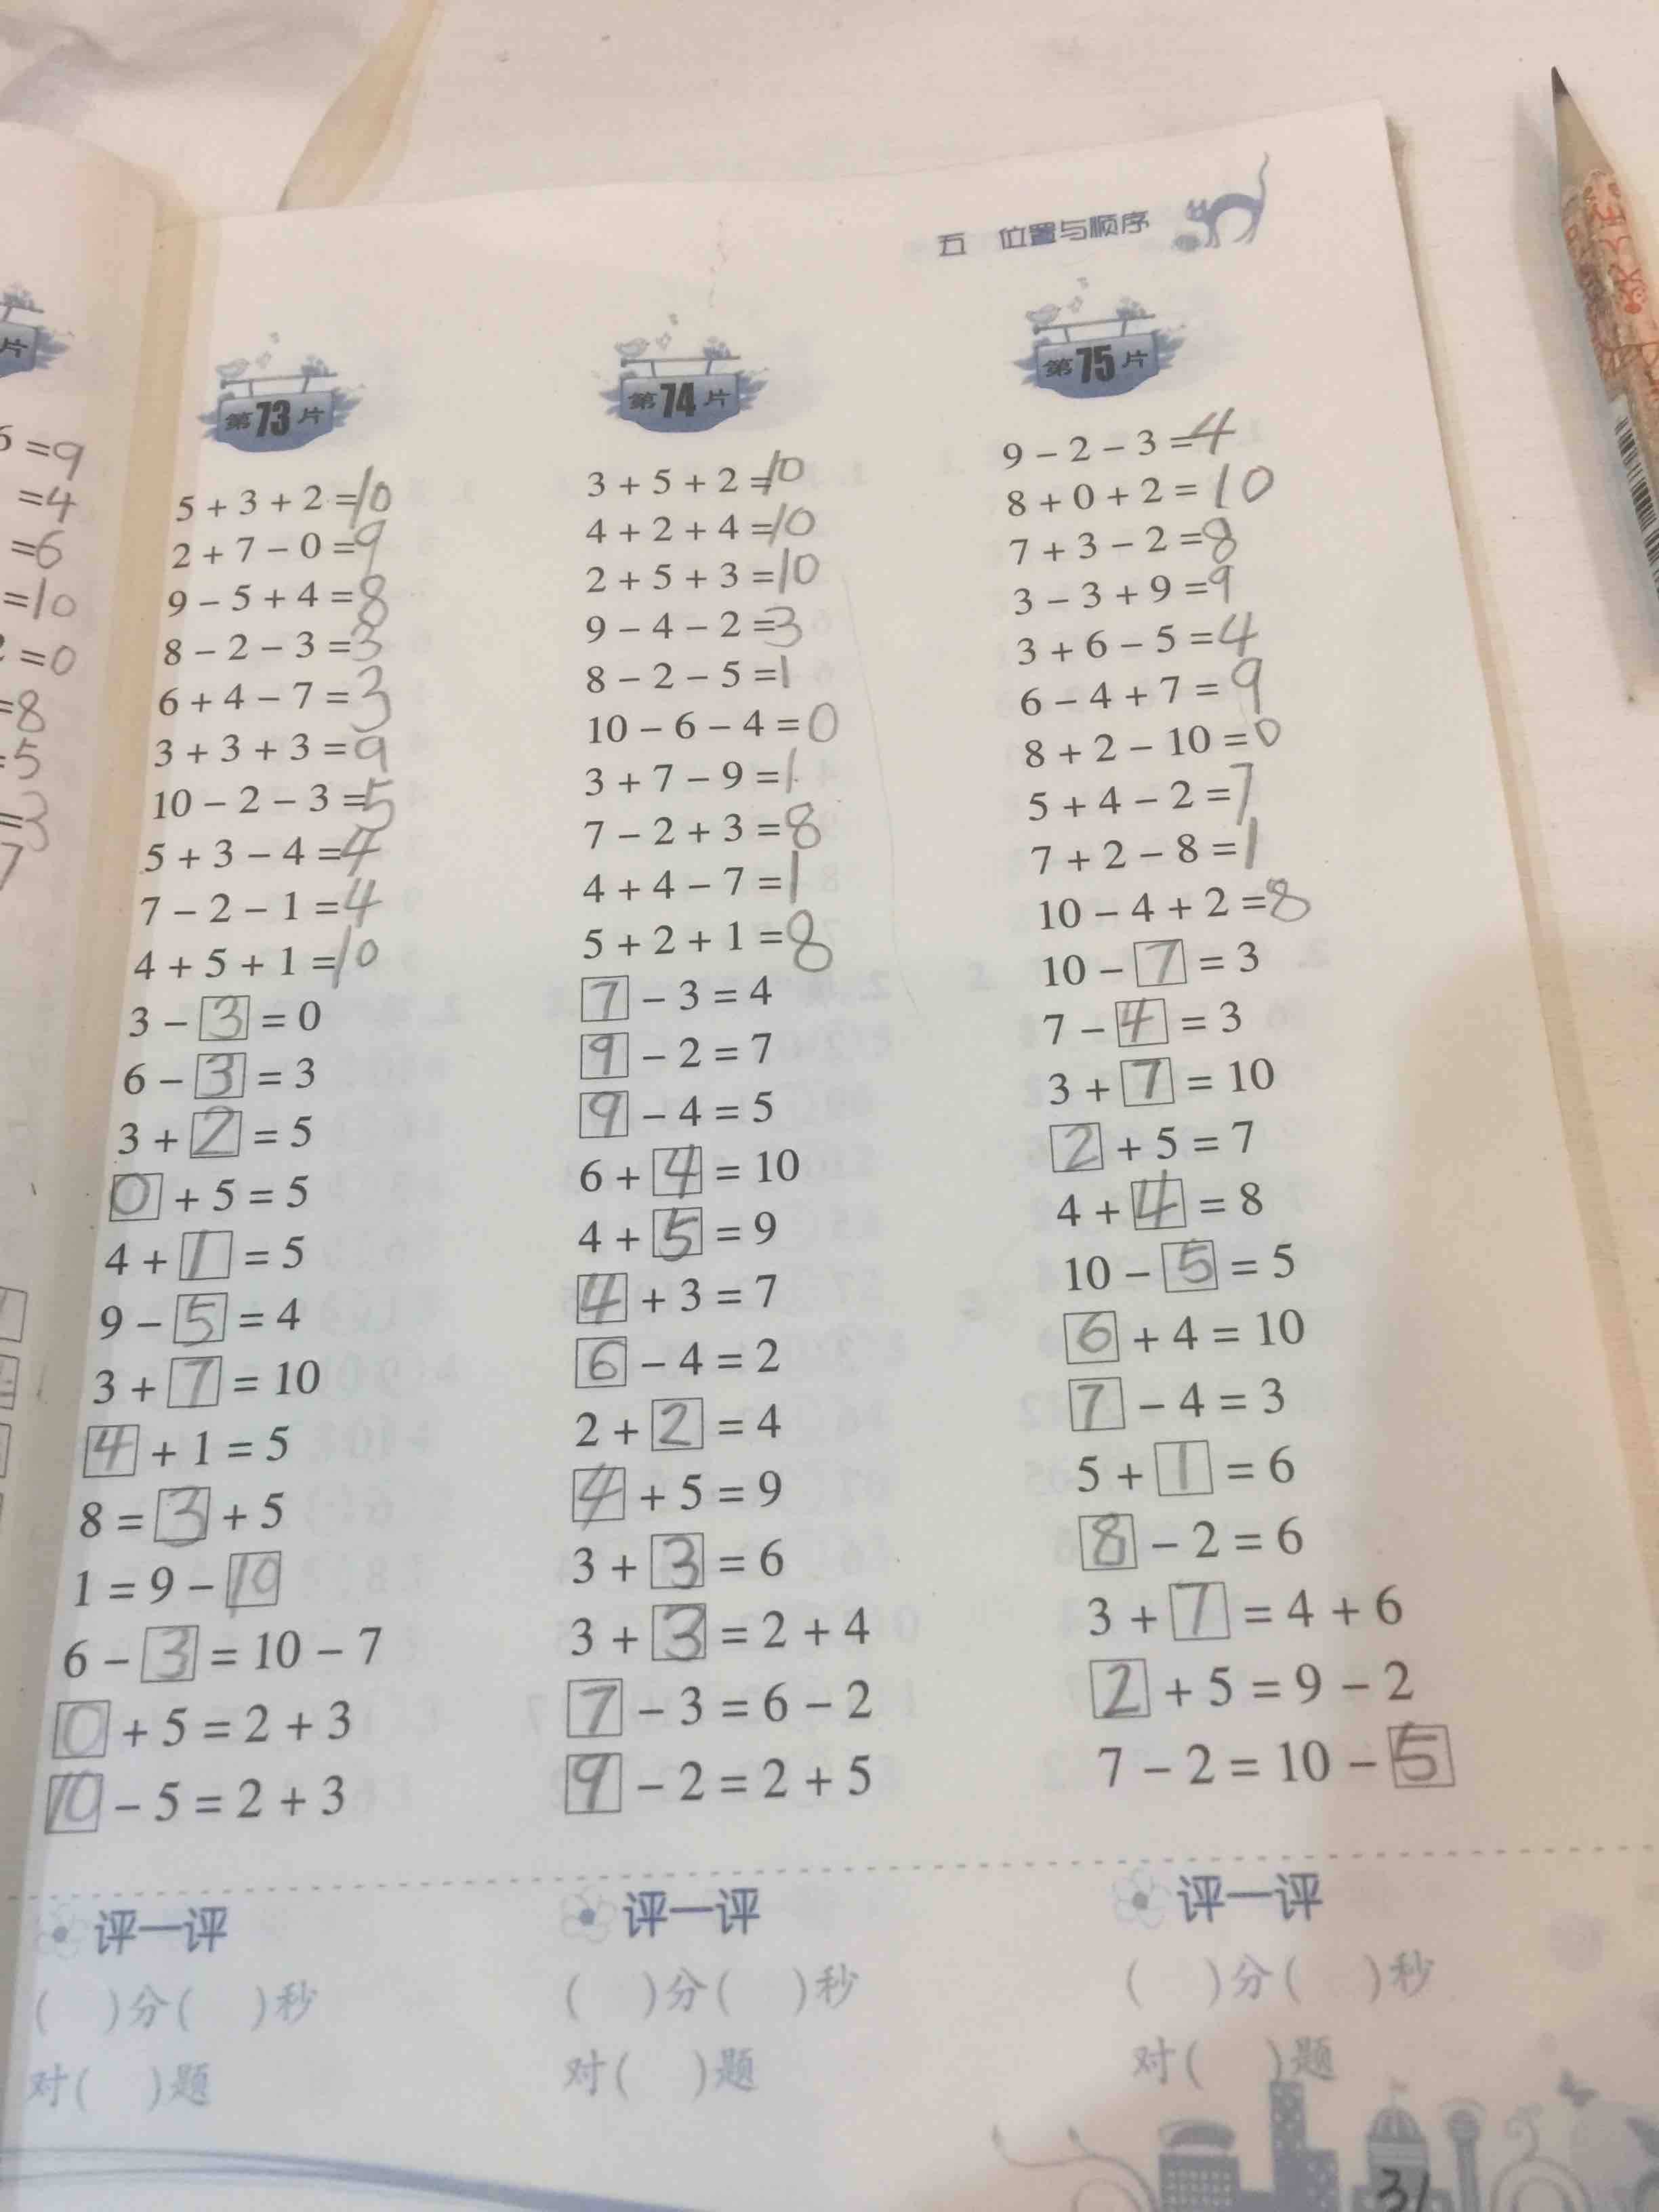 五 位置与顺序
片
=9
=4
=6
=10
=0
=8
5
=3
7
第73片
5 + 3 + 2 =10
2 + 7 - 0 =9
9 - 5 + 4 =8
8 - 2 - 3 =3
6 + 4 - 7 =3
3 + 3 + 3 =9
10 - 2 - 3 =5
5 + 3 - 4 =4
7 - 2 - 1 =4
4 + 5 + 1 =10
3 - 3 = 0
6 - 3 = 3
3 + 2 = 5
0 + 5 = 5
4 + 1 = 5
9 - 5 = 4
3 + 7 = 10
4 + 1 = 5
8 = 3 + 5
1 = 9 - 10
6 - 3 = 10 - 7
0 + 5 = 2 + 3
10 - 5 = 2 + 3
评一评
( )分( )秒
对( )题
第74片
3 + 5 + 2 =10
4 + 2 + 4 =10
2 + 5 + 3 =10
9 - 4 - 2 =3
8 - 2 - 5 =1
10 - 6 - 4 =0
3 + 7 - 9 =1
7 - 2 + 3 =8
4 + 4 - 7 =1
5 + 2 + 1 =8
7 - 3 = 4
9 - 2 = 7
9 - 4 = 5
6 + 4 = 10
4 + 5 = 9
4 + 3 = 7
6 - 4 = 2
2 + 2 = 4
4 + 5 = 9
3 + 3 = 6
3 + 3 = 2 + 4
7 - 3 = 6 - 2
9 - 2 = 2 + 5
评一评
( )分( )秒
对( )题
第75片
9 - 2 - 3 =4
8 + 0 + 2 =10
7 + 3 - 2 =8
3 - 3 + 9 =9
3 + 6 - 5 =4
6 - 4 + 7 =9
8 + 2 - 10 =0
5 + 4 - 2 =7
7 + 2 - 8 =1
10 - 4 + 2 =8
10 - 7 = 3
7 - 4 = 3
3 + 7 = 10
2 + 5 = 7
4 + 4 = 8
10 - 5 = 5
6 + 4 = 10
7 - 4 = 3
5 + 1 = 6
8 - 2 = 6
3 + 7 = 4 + 6
2 + 5 = 9 - 2
7 - 2 = 10 - 5
评一评
( )分( )秒
对( )题
31